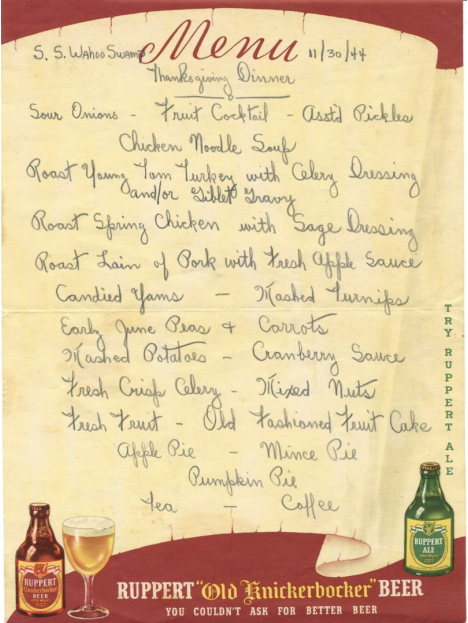 S. S. Wahoo Swamp Menu 11/30/44
Thanksgiving Dinner
Sour Onions - Fruit Cocktail - Asst'd Pickles
Chicken Noodle Soup
Roast Young Tom Turkey with Celery Dressing
and/or Giblet Gravy
Roast Spring Chicken with Sage Dressing
Roast Loin of Pork with Fresh Apple Sauce
Candied Yams - Mashed Turnips
Early June Peas & Carrots
Mashed Potatoes - Cranberry Sauce
Fresh Crisp Celery - Mixed Nuts
Fresh Fruit - Old Fashioned Fruit Cake
Apple Pie - Mince Pie
Pumpkin Pie
Tea - Coffee
TRY RUPPERT ALE
RUPPERT
Knickerbocker
BEER
RUPPERT
ALE
RUPPERT "Old Knickerbocker" BEER
YOU COULDN'T ASK FOR BETTER BEER